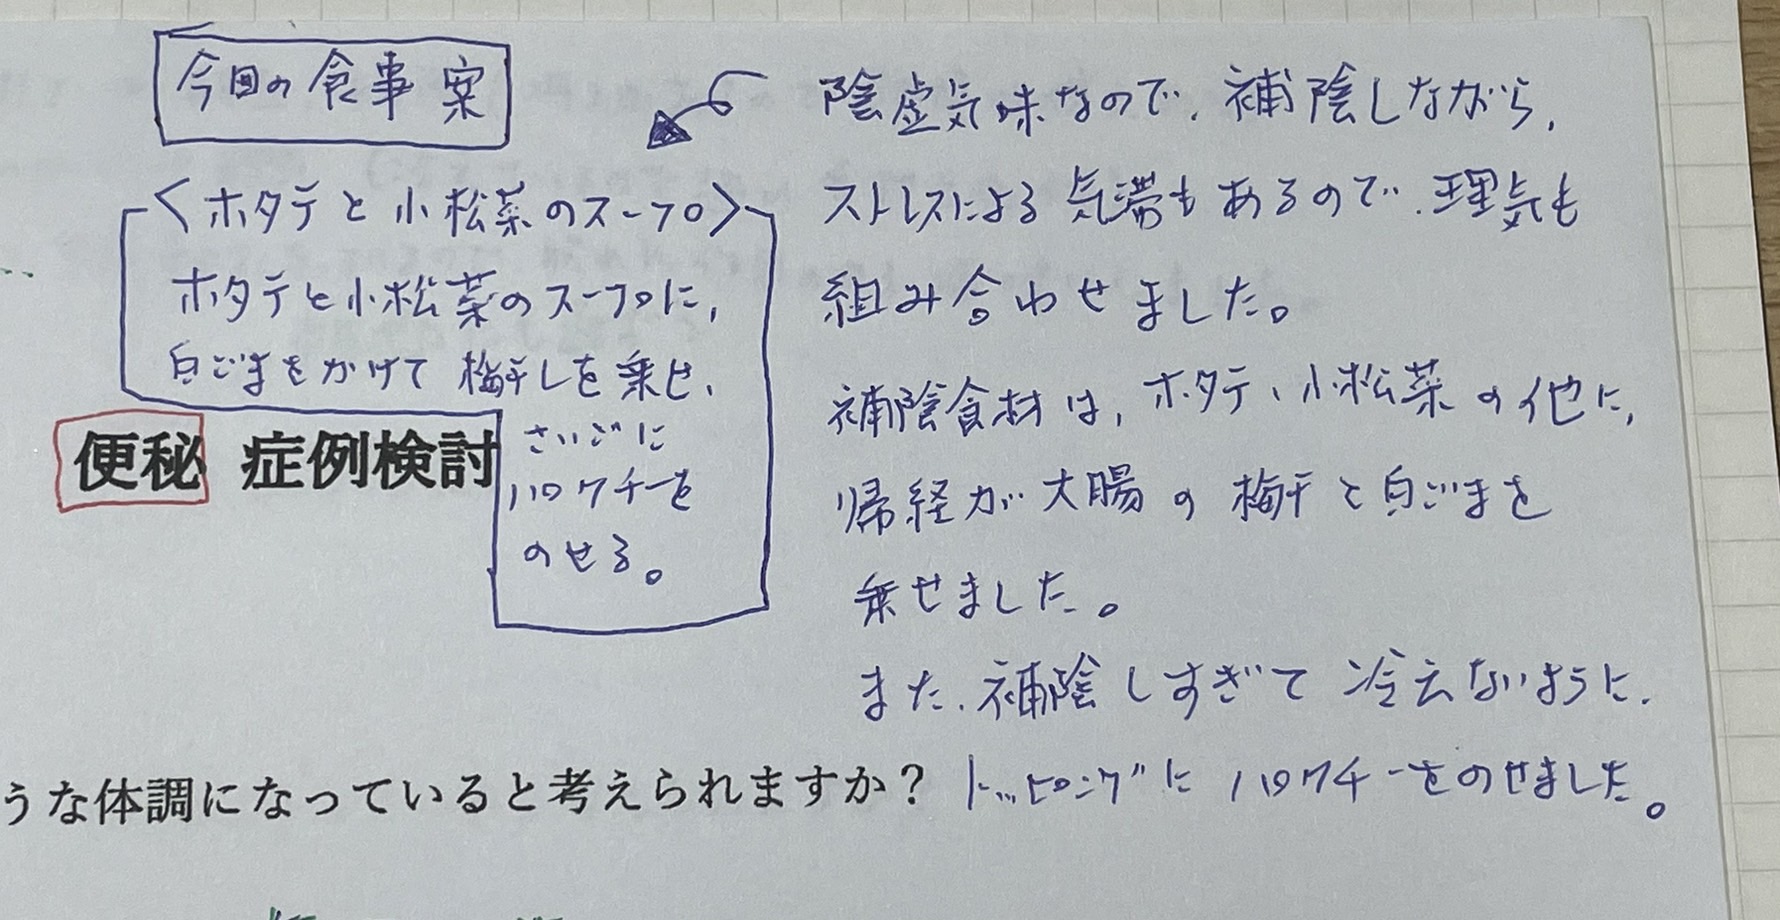 今日の食事案
〈ホタテと小松菜のスープ〉
ホタテと小松菜のスープに、
白ごまをかけて梅干しを乗せ、
さいごに
パクチーを
のせる。
便秘 症例検討
陰虚気味なので、補陰しながら、
ストレスによる気滞もあるので、理気も
組み合わせました。
補陰食材は、ホタテ、小松菜の他に、
帰経が大腸の梅干と白ごまを
乗せました。
また、補陰しすぎて冷えないように、
トッピングにパクチーをのせました。
うな体調になっていると考えられますか？